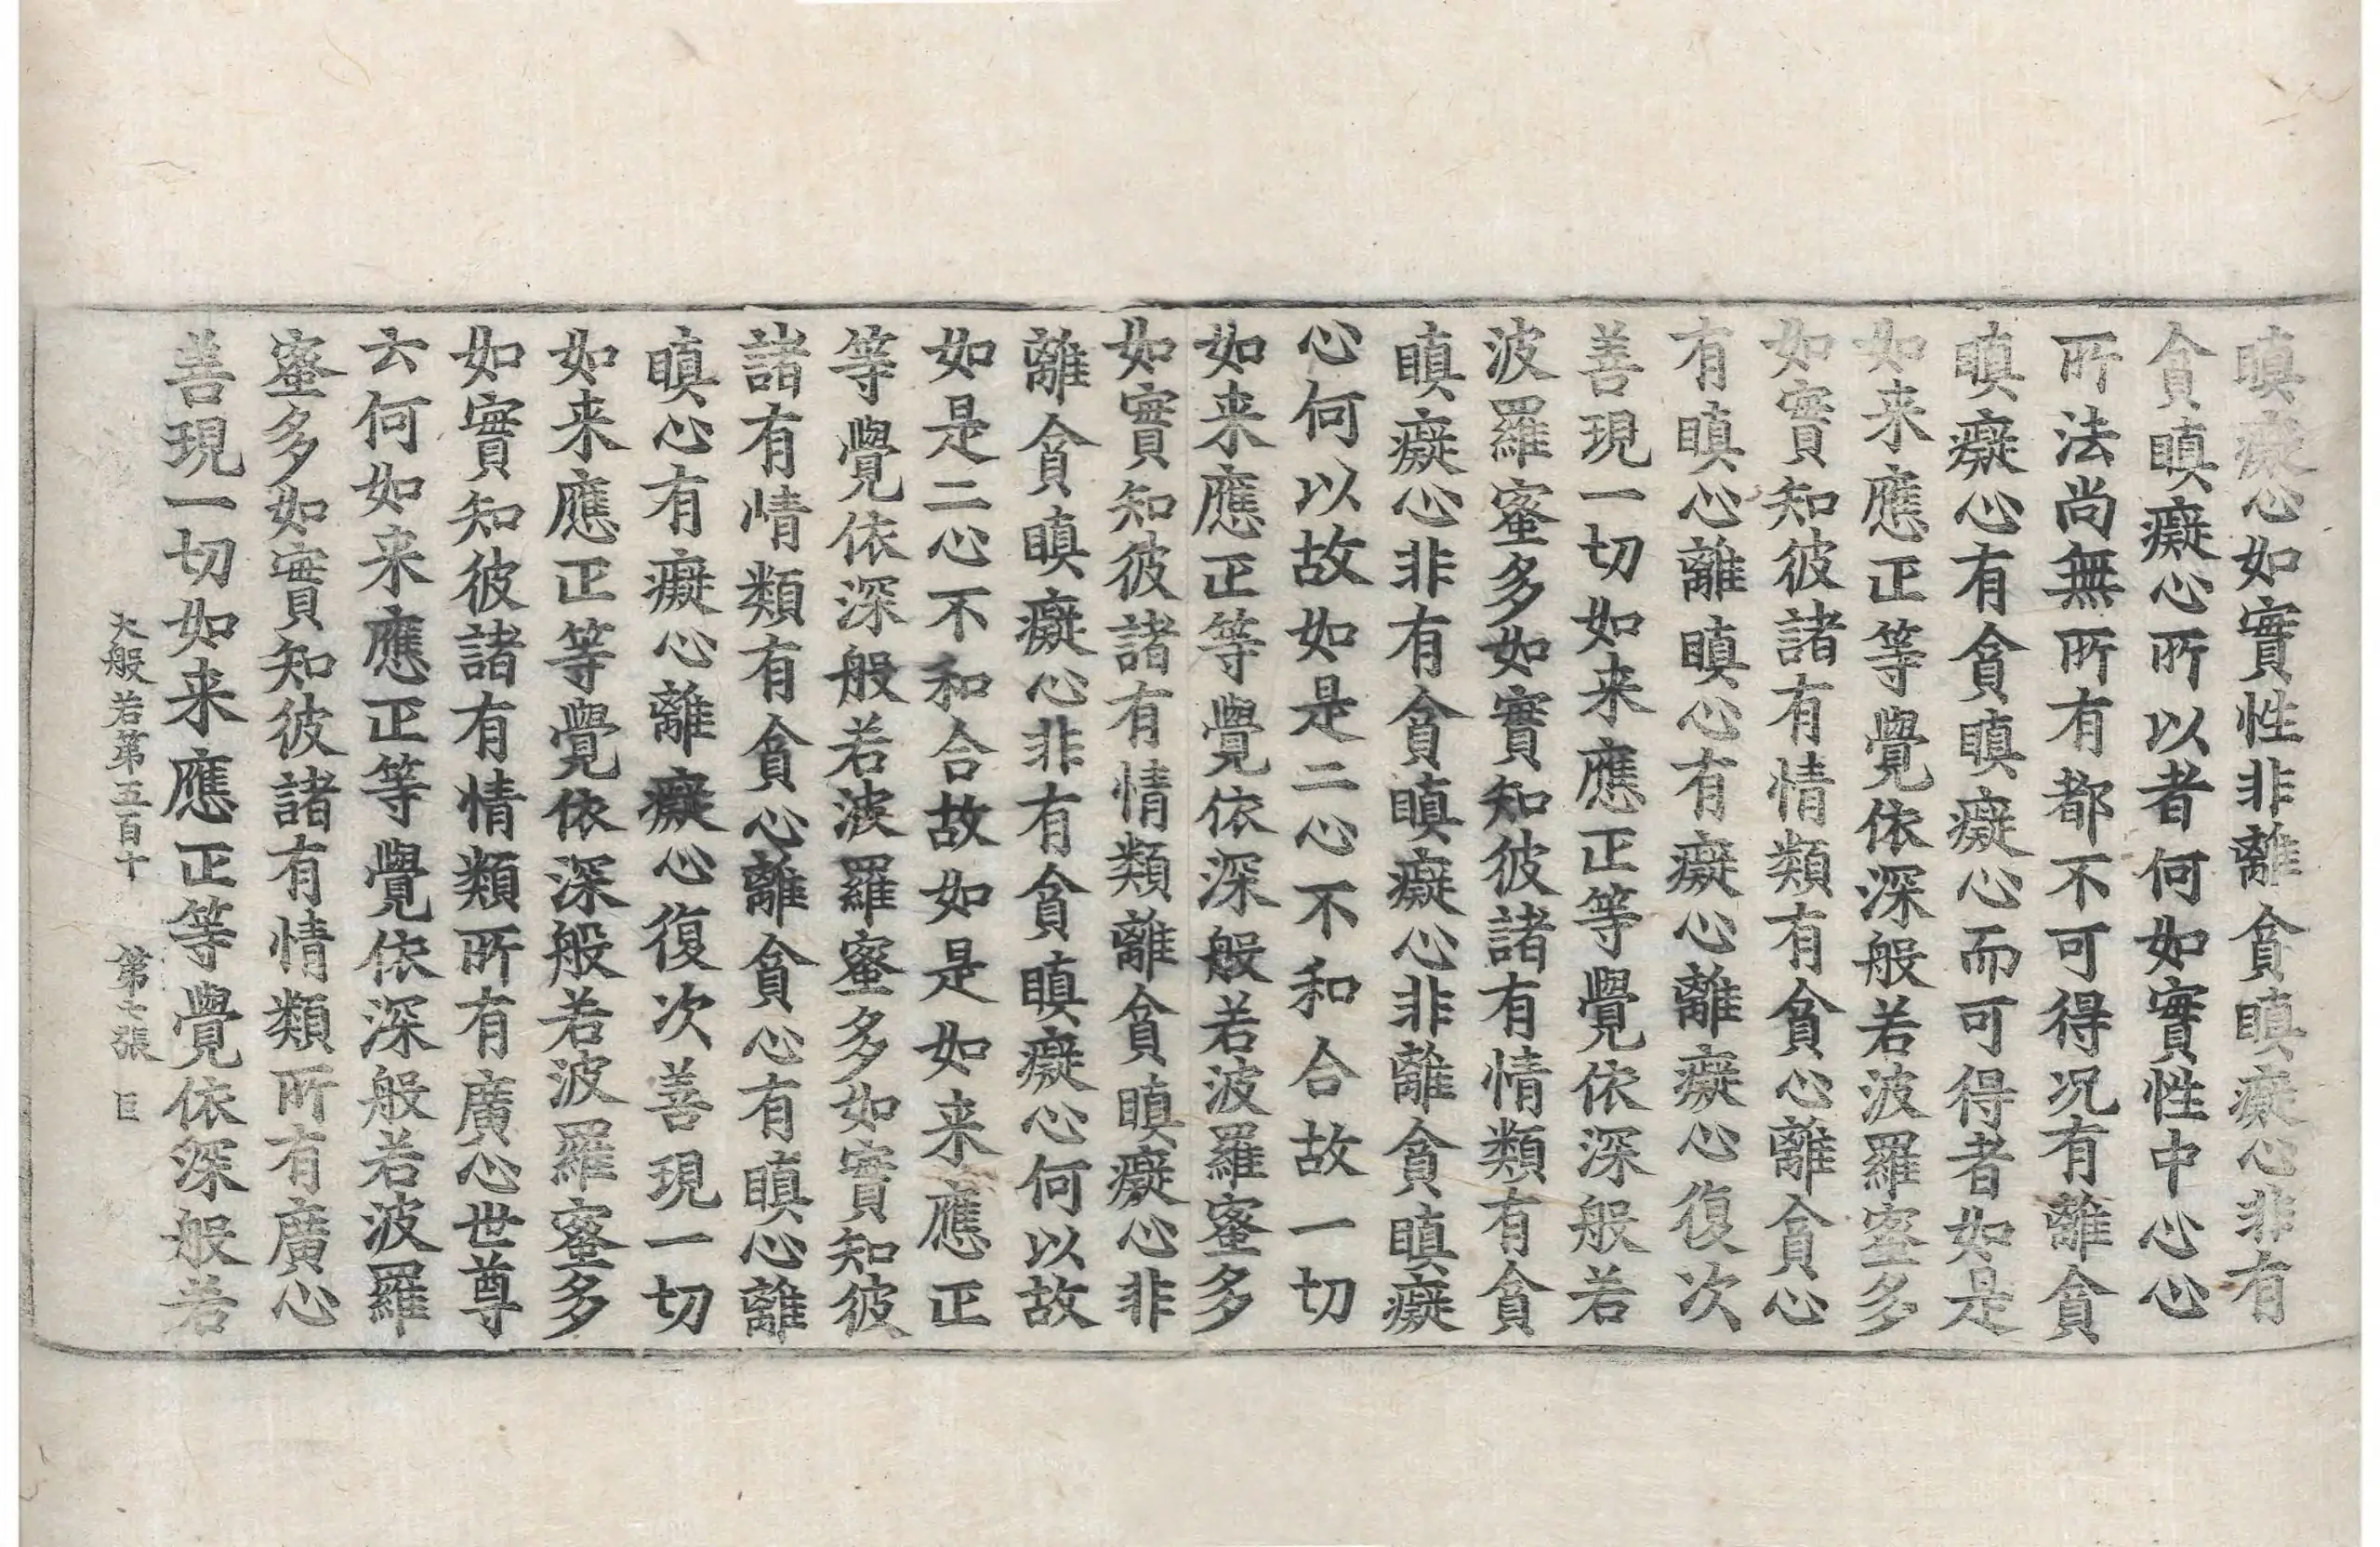 瞋癡心如實性非離貪瞋癡心非有
貪瞋癡心所以者何如實性中心心
所法尚無所有都不可得况有離貪
瞋癡心有貪瞋癡心而可得者如是
如来應正等覺依深般若波羅蜜多
如實知彼諸有情類有貪心離貪心
有瞋心離瞋心有癡心離癡心復次
善現一切如来應正等覺依深般若
波羅蜜多如實知彼諸有情類有貪
瞋癡心非有貪瞋癡心非離貪瞋癡
心何以故如是二心不和合故一切
如来應正等覺依深般若波羅蜜多
如實知彼諸有情類離貪瞋癡心非
離貪瞋癡心非有貪瞋癡心何以故
如是二心不和合故如是如来應正
等覺依深般若波羅蜜多如實知彼
諸有情類有貪心離貪心有瞋心離
瞋心有癡心離癡心復次善現一切
如来應正等覺依深般若波羅蜜多
如實知彼諸有情類所有廣心世尊
云何如来應正等覺依深般若波羅
蜜多如實知彼諸有情類所有廣心
善現一切如来應正等覺依深般若
大般若第五百十 第七張